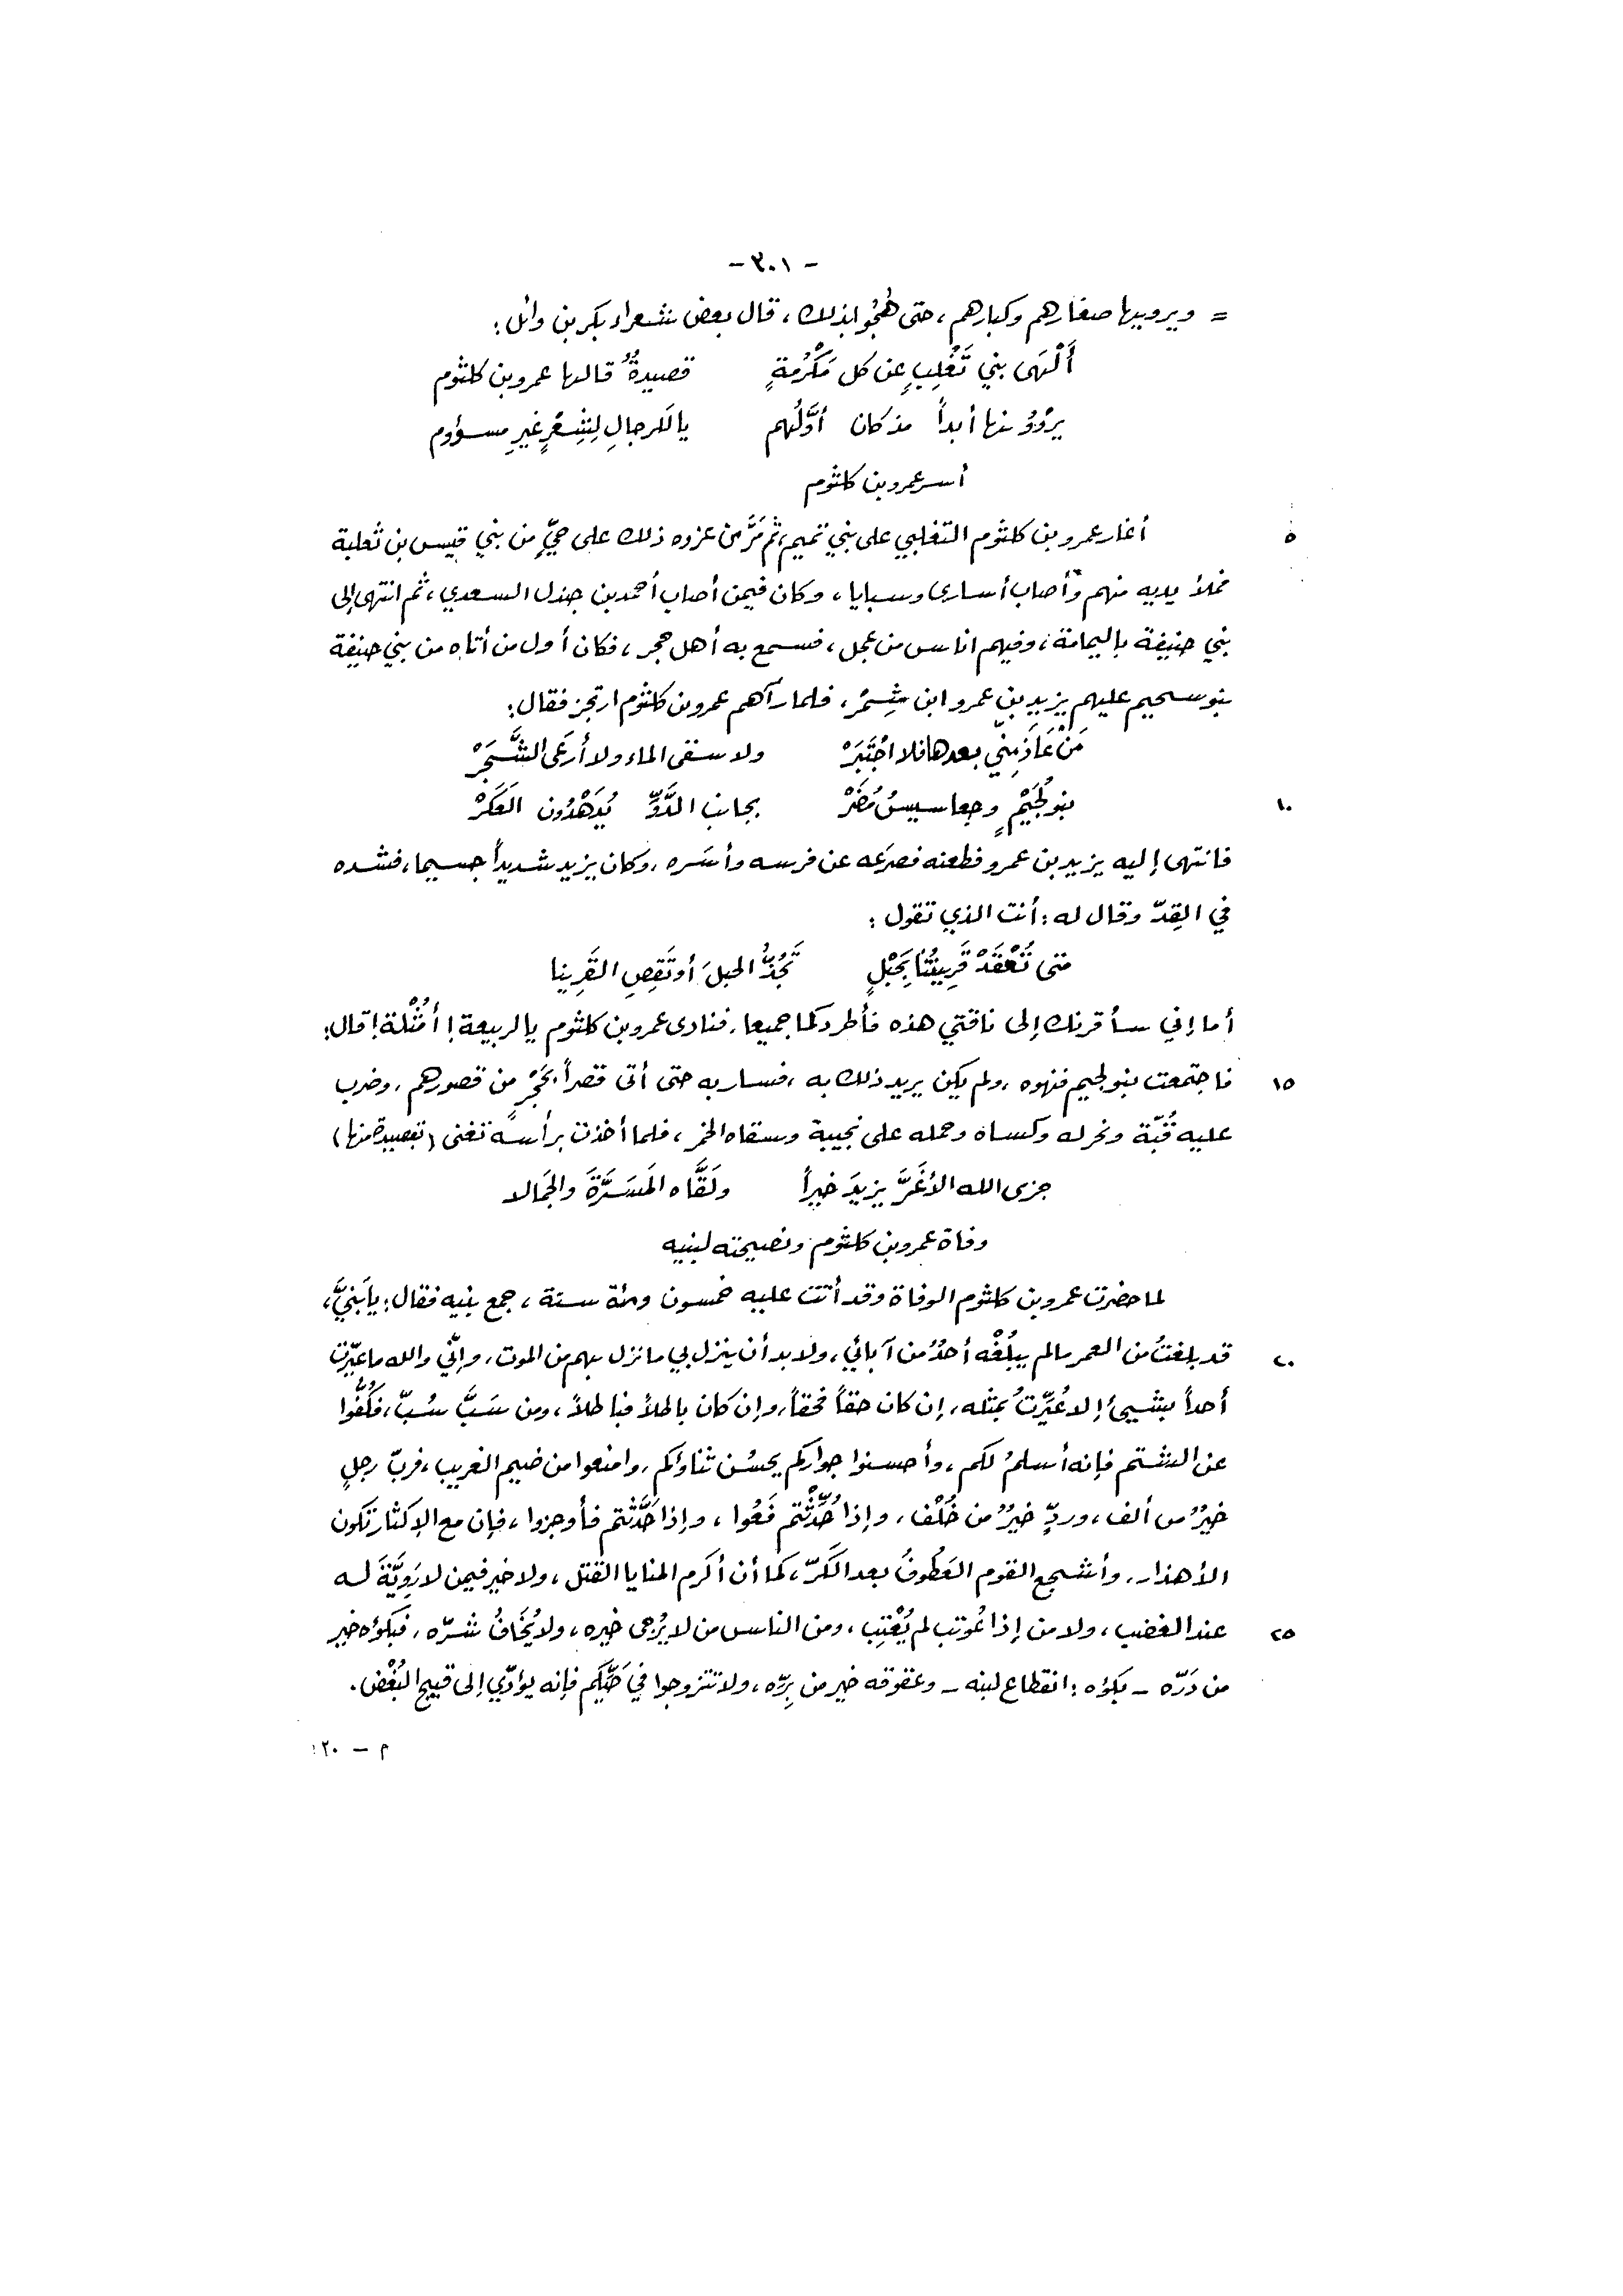 - ٣٠١ -
= ويرويها صغارهم وكبارهم، حتى هُجُوا بذلك، قال بعض شعراء بكر بن وائل:
أَلْهَى بني تَغْلِبٍ عن كل مَكْرُمةٍ قصيدةٌ قالها عمرو بن كلثوم
يروُونها أبداً مذ كان أوَّلُهم يا لَلرجالِ لِشِعْرٍ غيرِ مسؤوم
أسر عمرو بن كلثوم
٥ أغار عمرو بن كلثوم التغلبي على بني تميم، ثم مَرَّ من غزوه ذلك على حيٍّ من بني قيس بن ثعلبة
فملأ يديه منهم وأصاب أسارى وسبايا، وكان فيمن أصاب أحمد بن جندل السعدي، ثم انتهى إلى
بني حنيفة باليمامة، وفيهم اناس من عجل، فسمع به أهل حجر، فكان أول من أتاه من بني حنيفة
بنو سحيم عليهم يزيد بن عمرو ابن شِمْرُ، فلما رآهم عمرو بن كلثوم ارتجز فقال:
مَنْ عَاذَ مِنِّي بعدها فلا اجْتَبَرْ ولا سقى الماء ولا أرعَى الشَّجَرْ
١٠ بنو لُجَيْمٍ وجعاسيسُ مُضَرْ بجانب الدَّوِّ يُدَهْدُون العَكَرْ
فانتهى إليه يزيد بن عمرو فطعنه فصرَعه عن فرسه وأسَره، وكان يزيد شديداً جسيما، فشده
في القِدّ وقال له: أنت الذي تقول:
متى تُعْقَدْ قَرِينَتُنا بِحَبْلٍ تَجُذُّ الحبلَ أو تَقِصِ القَرِينا
أما إني سأقرنك إلى ناقتي هذه فأطردكما جميعا، فنادى عمرو بن كلثوم يا لربيعة! أمُثْلة! قال:
١٥ فاجتمعت بنو لجيم فنهوه، ولم يكن يريد ذلك به، فسار به حتى أتى قصراً بحَجْرٍ من قصورهم، وضرب
عليه قُبّة ونحر له وكساه وحمله على نجيبة وسقاه الخمر، فلما أخذت برأسه تغنى (بقصيدة منها)
جزى الله الأغَرَّ يزيدَ خيراً ولَقَّاه المَسَرَّةَ والجَمالا
وفاة عمرو بن كلثوم ونصيحته لبنيه
لما حضرت عمرو بن كلثوم الوفاة وقد أتت عليه خمسون ومئة سنة، جمع بنيه فقال: يا بَنيَّ،
٢٠ قد بلغتُ من العمر ما لم يبلُغْه أحدُ من آبائي، ولا بد أن ينزل بي ما نزل بهم من الموت، وإنّي والله ما عيّرت
أحداً بشيئ إلا عُيِّرتُ بمثله، إن كان حقاً فحقاً، وإن كان باطلاً فباطلاً، ومن سَبَّ سُبّ، فكُفُّوا
عن الشتم فإنه أسلمُ لكم، وأحسنوا جواركم يحسُن ثناؤكم، وامنعوا من ضيم الغريب، فربّ رجلٍ
خيرُ من ألف، وردٍّ خيرُ من خُلْف، وإذا حُدِّثْتم فَعُوا، وإذا حَدَّثْتم فأوجزوا، فإن مع الإكثار تكون
الأهذار، وأشجع القوم العَطُوفُ بعد الكَرّ، كما أن أكرم المنايا القتل، ولا خير فيمن لا رَوِيَّةَ له
٢٥ عند الغضب، ولا من إذا عُوتب لم يُعْتِب، ومن الناس من لا يُرْجى خيره، ولا يُخَافُ شرّه، فبكؤه خير
من دَرّه - بكؤه: انقطاع لبنه - وعقوقه خير من بِرِّه، ولا تتزوجوا في حَيِّكم فإنه يؤدّي إلى قبيح البُغْض.
م - ٢٠